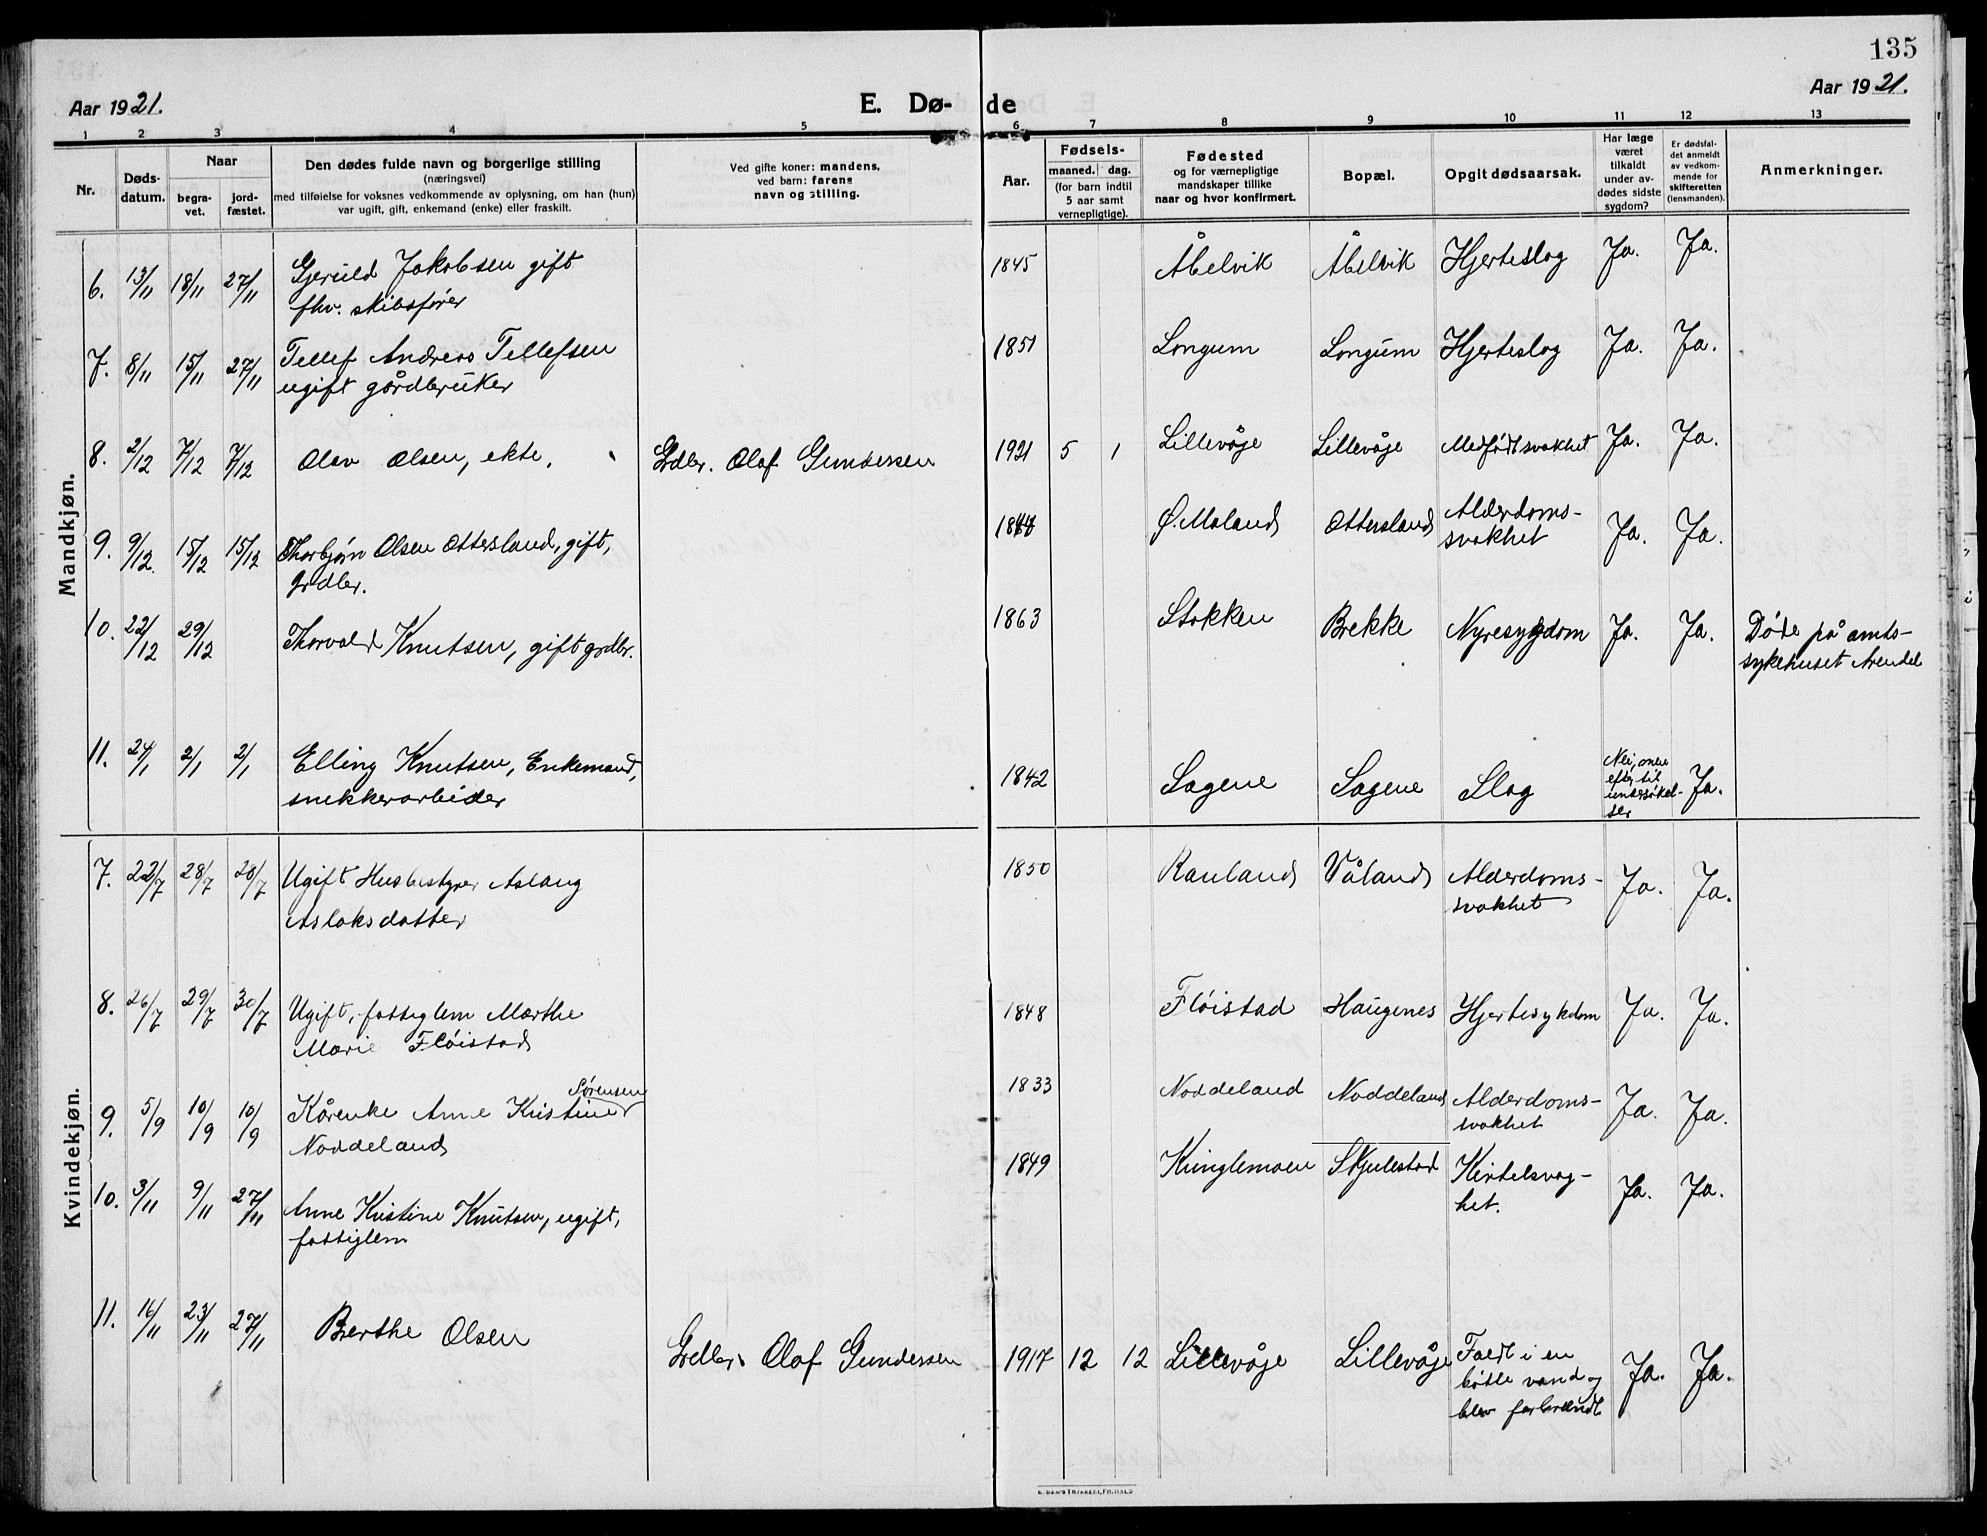 135
Aar 1921.
E. Dø-
de
Aar 1921.
1 2 3 4 5 6 7 8 9 10 11 12 13
Nr.
Døds-
datum.
Naar
begra-
vet.
jord-
fæstet.
Den dødes fulde navn og borgerlige stilling
(næringsvei)
med tilføielse for voksnes vedkommende av oplysning, om han (hun)
var ugift, gift, enkemand (enke) eller fraskilt.
Ved gifte koner: mandens,
ved barn: farens
navn og stilling.
Aar.
Fødsels-
maaned. dag.
(for barn indtil
5 aar samt
vernepligtige).
Fødested
og for værnepligtige
mandskaper tillike
naar og hvor konfirmert.
Bopæl.
Opgit dødsaarsak.
Har læge
været
tilkaldt
under av-
dødes sidste
sygdom?
Er dødsfal-
det anmeldt
av vedkom-
mende for
skifteretten
(lensmanden).
Anmerkninger.
Mandkjøn.
6. 13/11 18/11 27/11 Gjeruld Jakobsen gift 1845 Åbelvik Åbelvik Hjerteslag Ja. Ja.
fhv. skibsfører
7. 8/11 15/11 27/11 Tellef Andreas Tellefsen 1851 Longum Longum Hjerteslag Ja. Ja.
ugift gårdbruker
8. 2/12 7/12 7/12 Olav Olsen, ekte. Grdbr. Olaf Gundersen 1921 5 1 Lillevåje Lillevåje Medfødt svakhet Ja. Ja.
9. 9/12 15/12 15/12 Thorbjørn Olsen Ottersland, gift, Ø. Moland Ottersland Alderdoms-
svakhet Ja. Ja.
grdbr.
10. 22/12 29/12 Thorvald Knutsen, gift grdbr. 1863 Stokken Brekke Nyresygdom Ja. Ja. Døde på amts-
sykehuset Arendal
11. 24/1 2/1 2/1 Elling Knutsen, Enkemand, 1842 Sagene Sagene Slag Nei, men
efter til
undersøkel-
ser Ja.
snekkerarbeider
Kvindekjøn.
7. 22/7 28/7 28/7 Ugift Husbestyrer Aslaug 1850 Rauland Våland Alderdoms-
svakhet Ja. Ja.
Aslaksdatter
8. 26/7 29/7 30/7 Ugift, fattiglem Marthe 1848 Fløistad Haugenes Hjertesykdom Ja. Ja.
Marie Fløistad
9. 5/9 10/9 10/9 Kårenke Anne Kristine Sørensen 1833 Noddeland Noddeland Alderdoms-
svakhet Ja. Ja.
Noddeland
10. 3/11 9/11 27/11 Anne Kristine Knutsen, ugift, 1849 Kringlemoen Skjulestad Kirtelsvag-
het. Ja. Ja.
fattiglem
11. 16/11 23/11 27/11 Berthe Olsen Grdbr. Olaf Gundersen 1917 12 12 Lillevåje Lillevåje Faldt i en
bøtte vand og
blev forbrændt Ja. Ja.